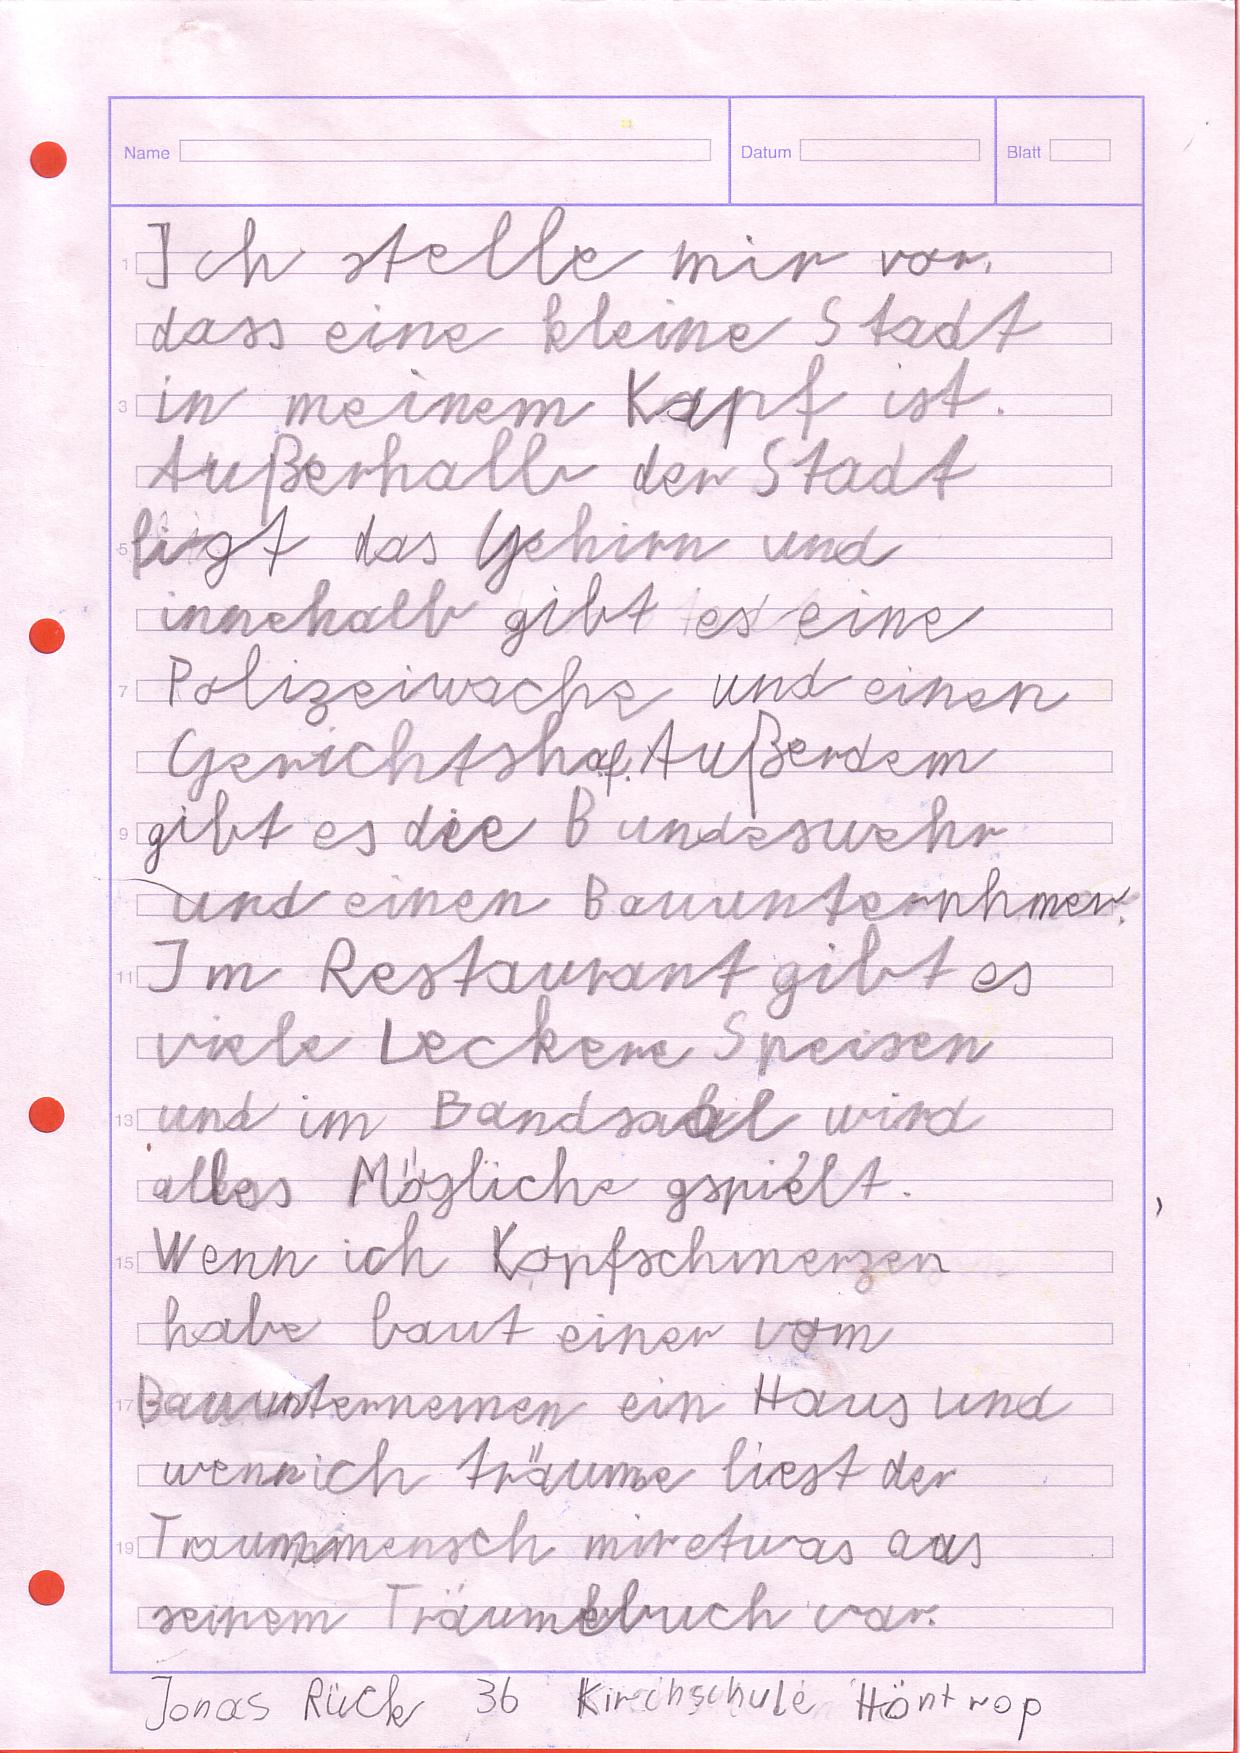 Name Datum Blatt
1 Ich stelle mir vor,
dass eine kleine Stadt
3 in meinem Kopf ist.
Außerhalb der Stadt
5 ligt das Gehirn und
innehalb gibt es eine
7 Polizeiwache und einen
Gerichtshof. Außerdem
9 gibt es die Bundeswehr
und einen Bauunternhmer.
11 Im Restaurant gibt es
viele Leckere Speisen
13 und im Bandsaal wird
alles Mögliche gspielt.
15 Wenn ich Kopfschmerzen
habe baut einer vom
17 Bauunternemen ein Haus und
wenn ich träume liest der
19 Traummensch mir etwas aus
seinem Träumebuch vor.
Jonas Rück 3b Kirchschule Höntrop